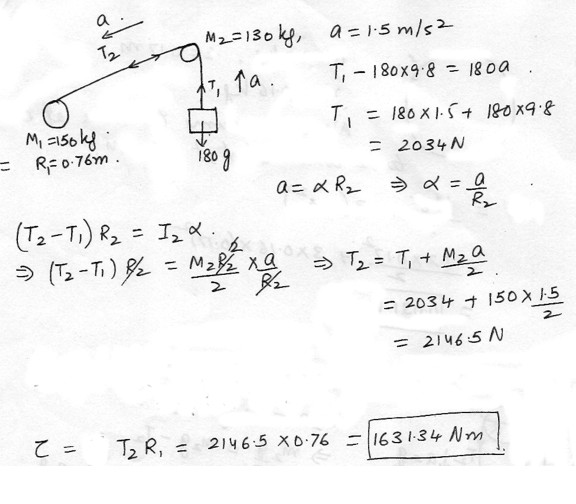 a.
T₂
M₂=130 kg, a = 1.5 m/s²
T₁ ↑a.
T₁ - 180×9.8 = 180a.
M₁=150kg.
= R₁=0.76m.
180g
T₁ = 180×1.5 + 180×9.8
= 2034N
a = αR₂ ⇒ α = a/R₂.
(T₂-T₁) R₂ = I₂ α.
⇒ (T₂-T₁) R₂ = M₂R₂²/2 × a/R₂ ⇒ T₂ = T₁ + M₂a/2
= 2034 + 150 × 1.5/2
= 2146.5 N
τ = T₂ R₁ = 2146.5 × 0.76 = 1631.34 Nm